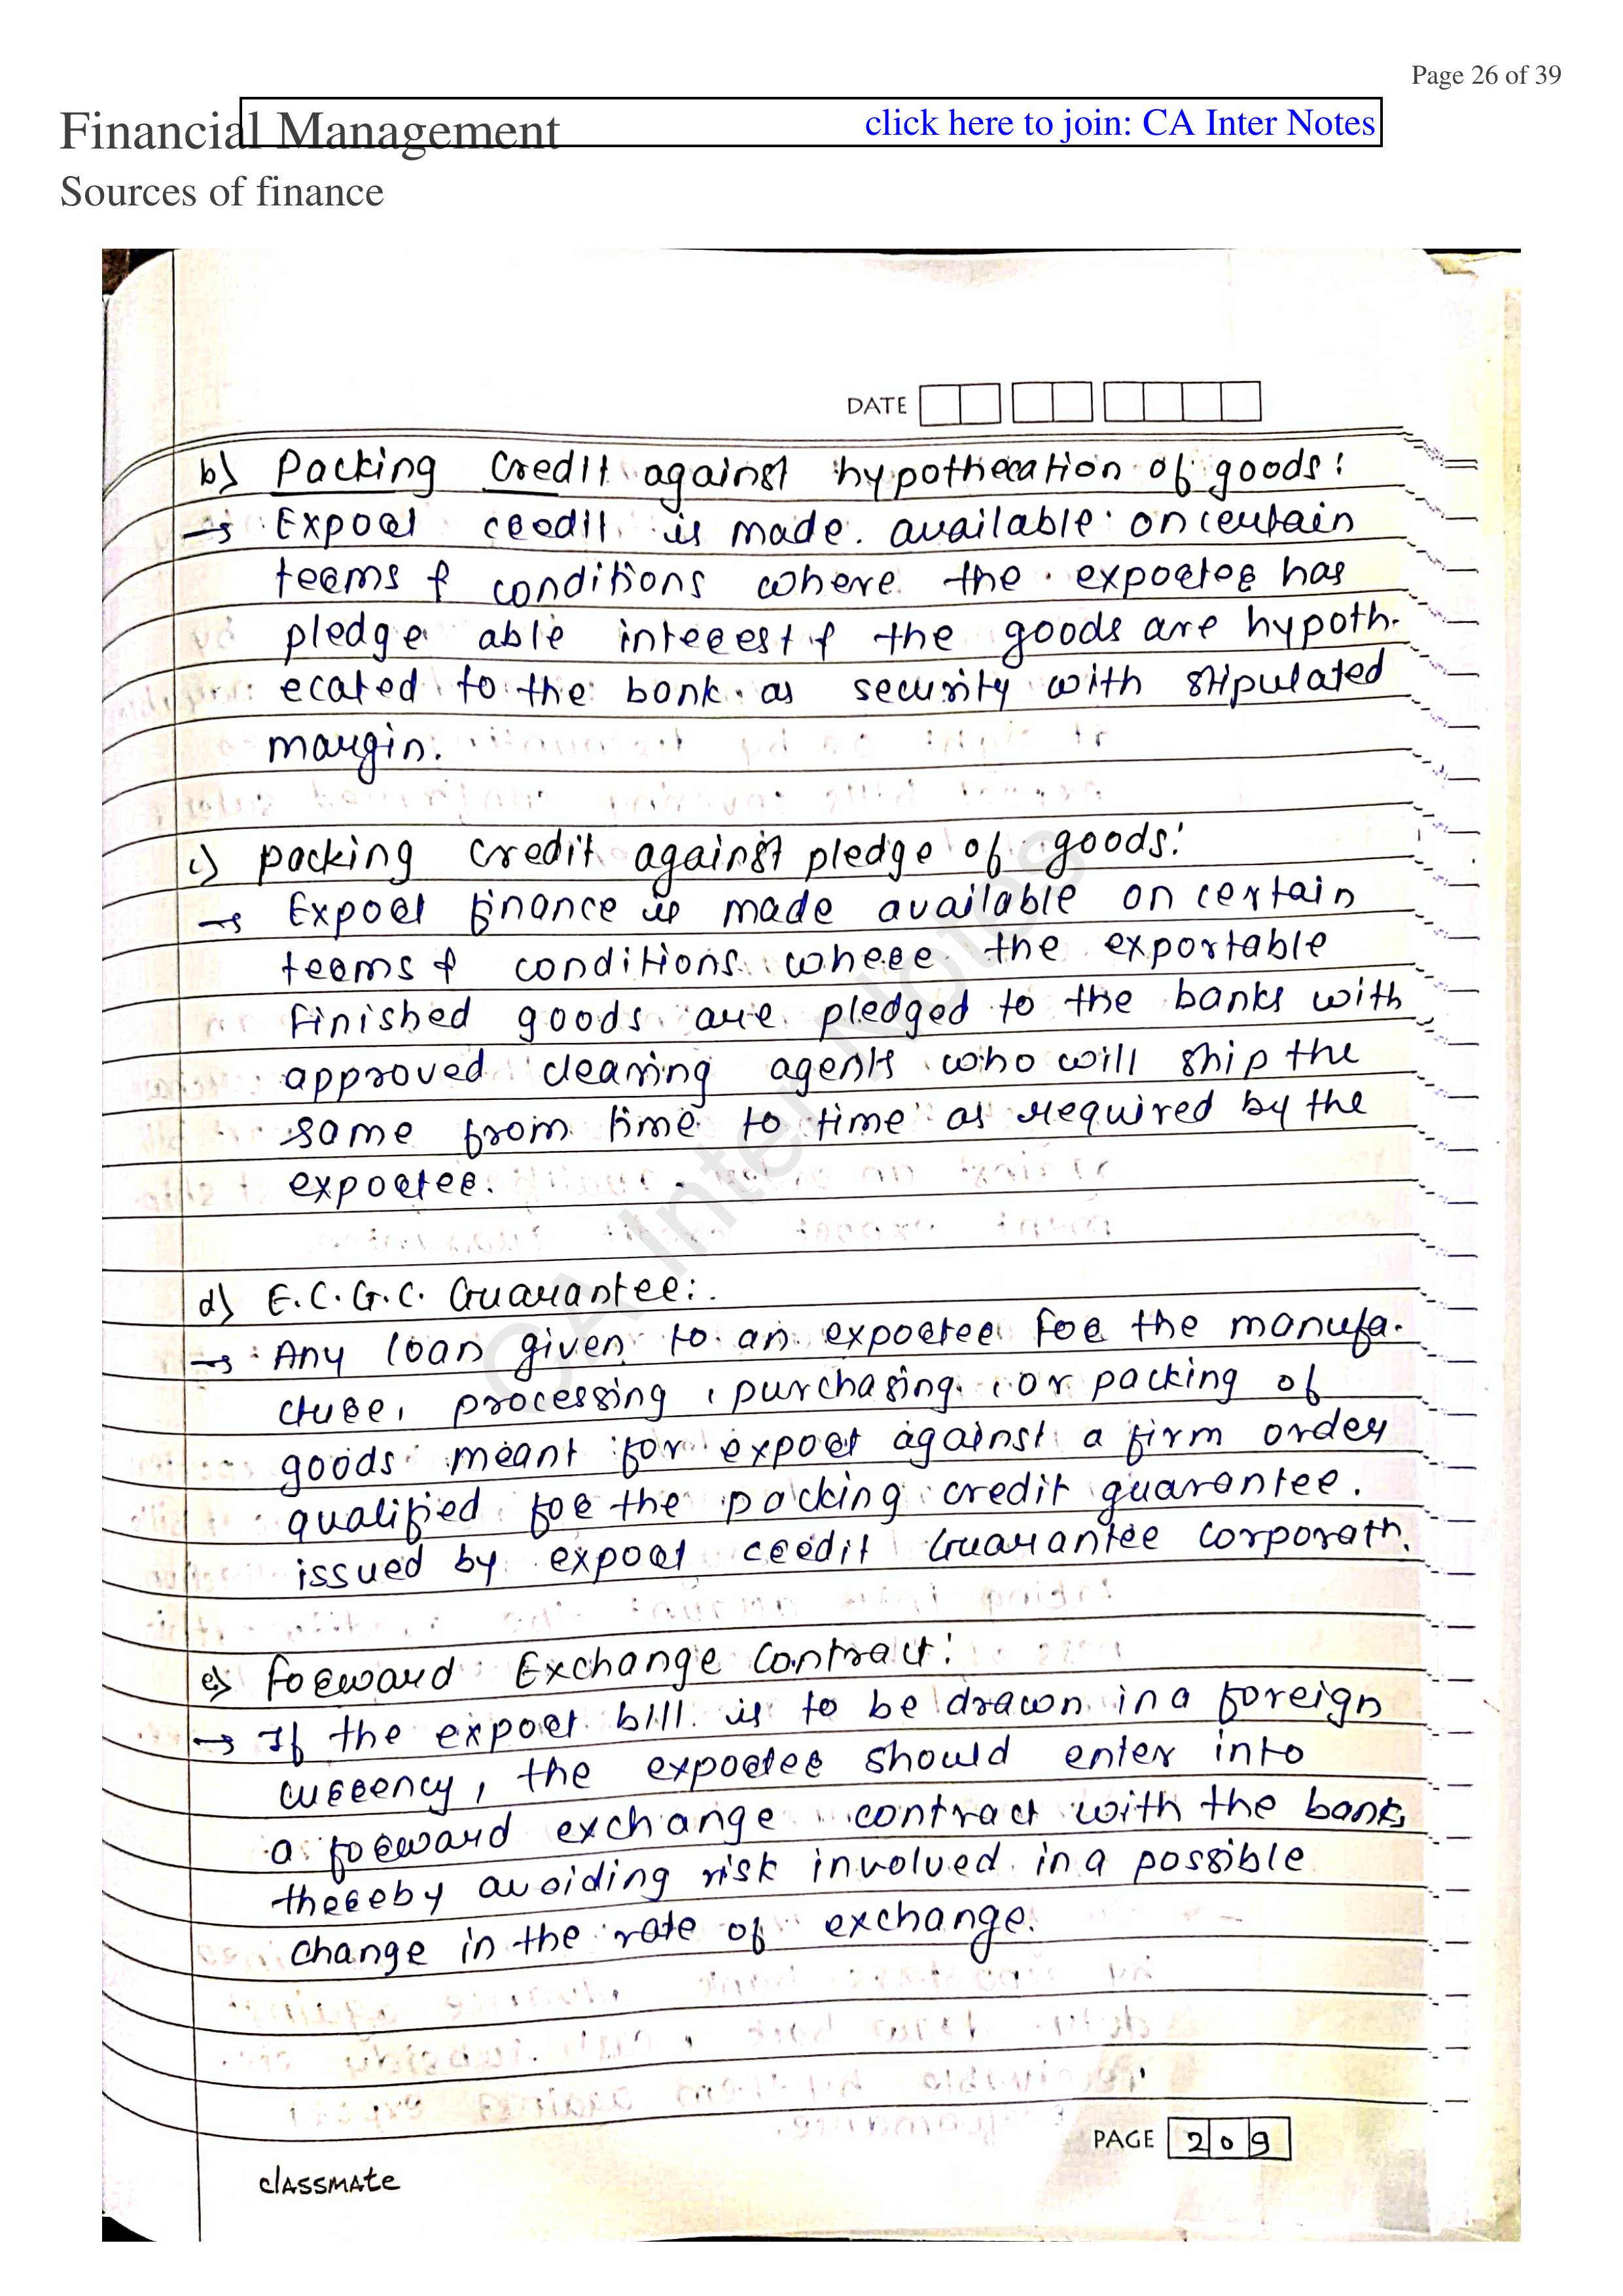 Page 26 of 39
Financial Management
click here to join: CA Inter Notes
Sources of finance
DATE
b) Packing Credit against hypothecation of goods:
→ Export credit is made available on certain
terms & conditions where the exporter has
pledge able interest & the goods are hypoth-
ecated to the bank as security with stipulated
margin.
c) packing credit against pledge of goods:
→ Export finance is made available on certain
terms & conditions where the exportable
finished goods are pledged to the banks with
approved clearing agents who will ship the
same from time to time as required by the
exporter.
d) E.C.G.C. Guarantee:
→ Any loan given to an exporter for the manufa-
cture, processing, purchasing, or packing of
goods meant for export against a firm order
qualified for the packing credit guarantee.
issued by export credit Guarantee corporath.
e) Forward Exchange Contract:
→ If the export bill is to be drawn in a foreign
currency, the exporter should enter into
a forward exchange contract with the bank,
thereby avoiding risk involved in a possible
change in the rate of exchange.
CA Inter Notes
PAGE 209
classmate